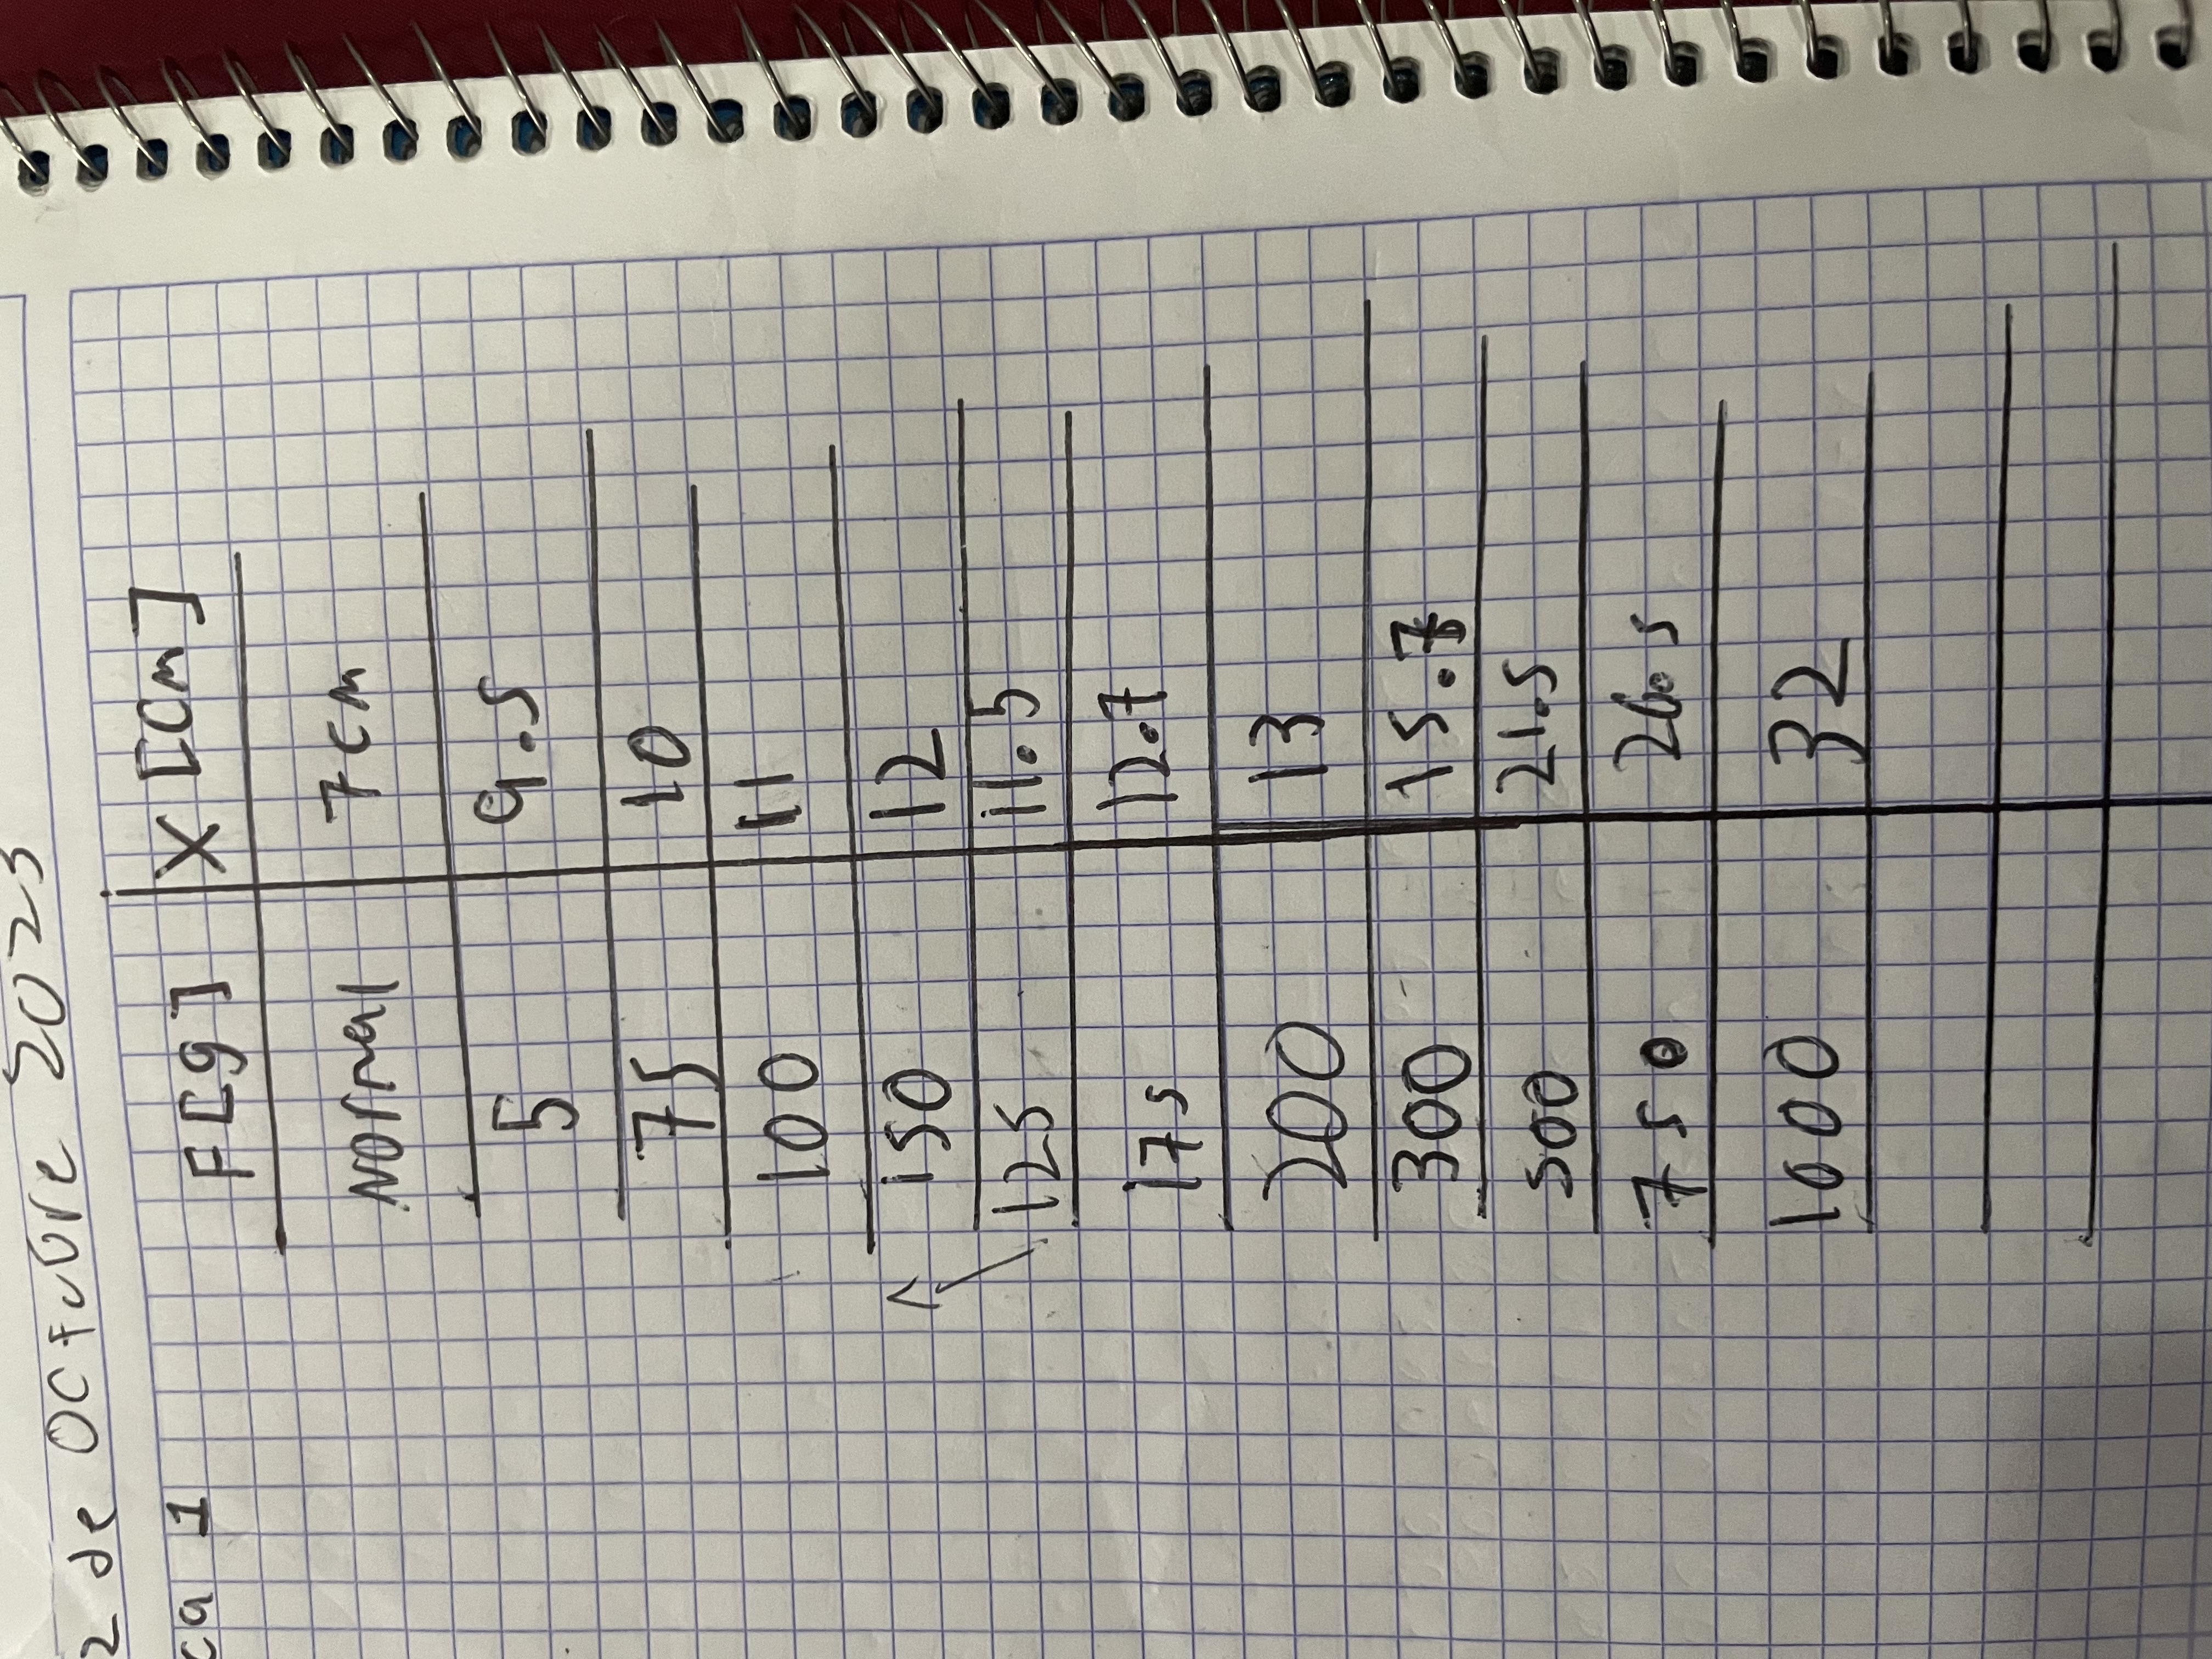 2 de Octubre 2023
ca 1
F[g] X [cm]
Normal 7cm
5 9.5
75 10
100 11
150 12
125 11.5
175 12.7
200 13
300 15.7
500 21.5
750 26.5
1000 32